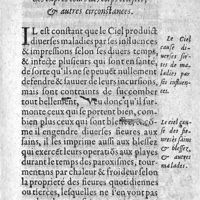 & autres circonstances.
IL est constant que le Ciel produit
diverses maladies par les influences
& impressions selon les divers temps,
& infecte plusieurs qui sont en santé
de sorte qu'ils ne peuvent aucunement
deffendre & laveurs de leurs incursions,
mais sont contraints de succomber
tout bellement, Veu donc qu'il sur-
monte ceux qui se portent bien, com-
bien plus ceux qui sont blessez, &
il engendre diverses fieures aux
sains, il ligne aussi aux blessez ou
qui ont des apostemes diverses dou-
leurs durant le temps des paroxismes, tour-
mentans par chaleur & froideur selon
la proprieté des fieures quotidiennes
ou tierces, lesquelles ne s'en vont pas
Le Ciel
cause di-
verses sor-
tes de ma-
ladies par
ses influen-
ces.
Le ciel cause
des fie-
ures és sains
& blessez,
& autres
maladies.